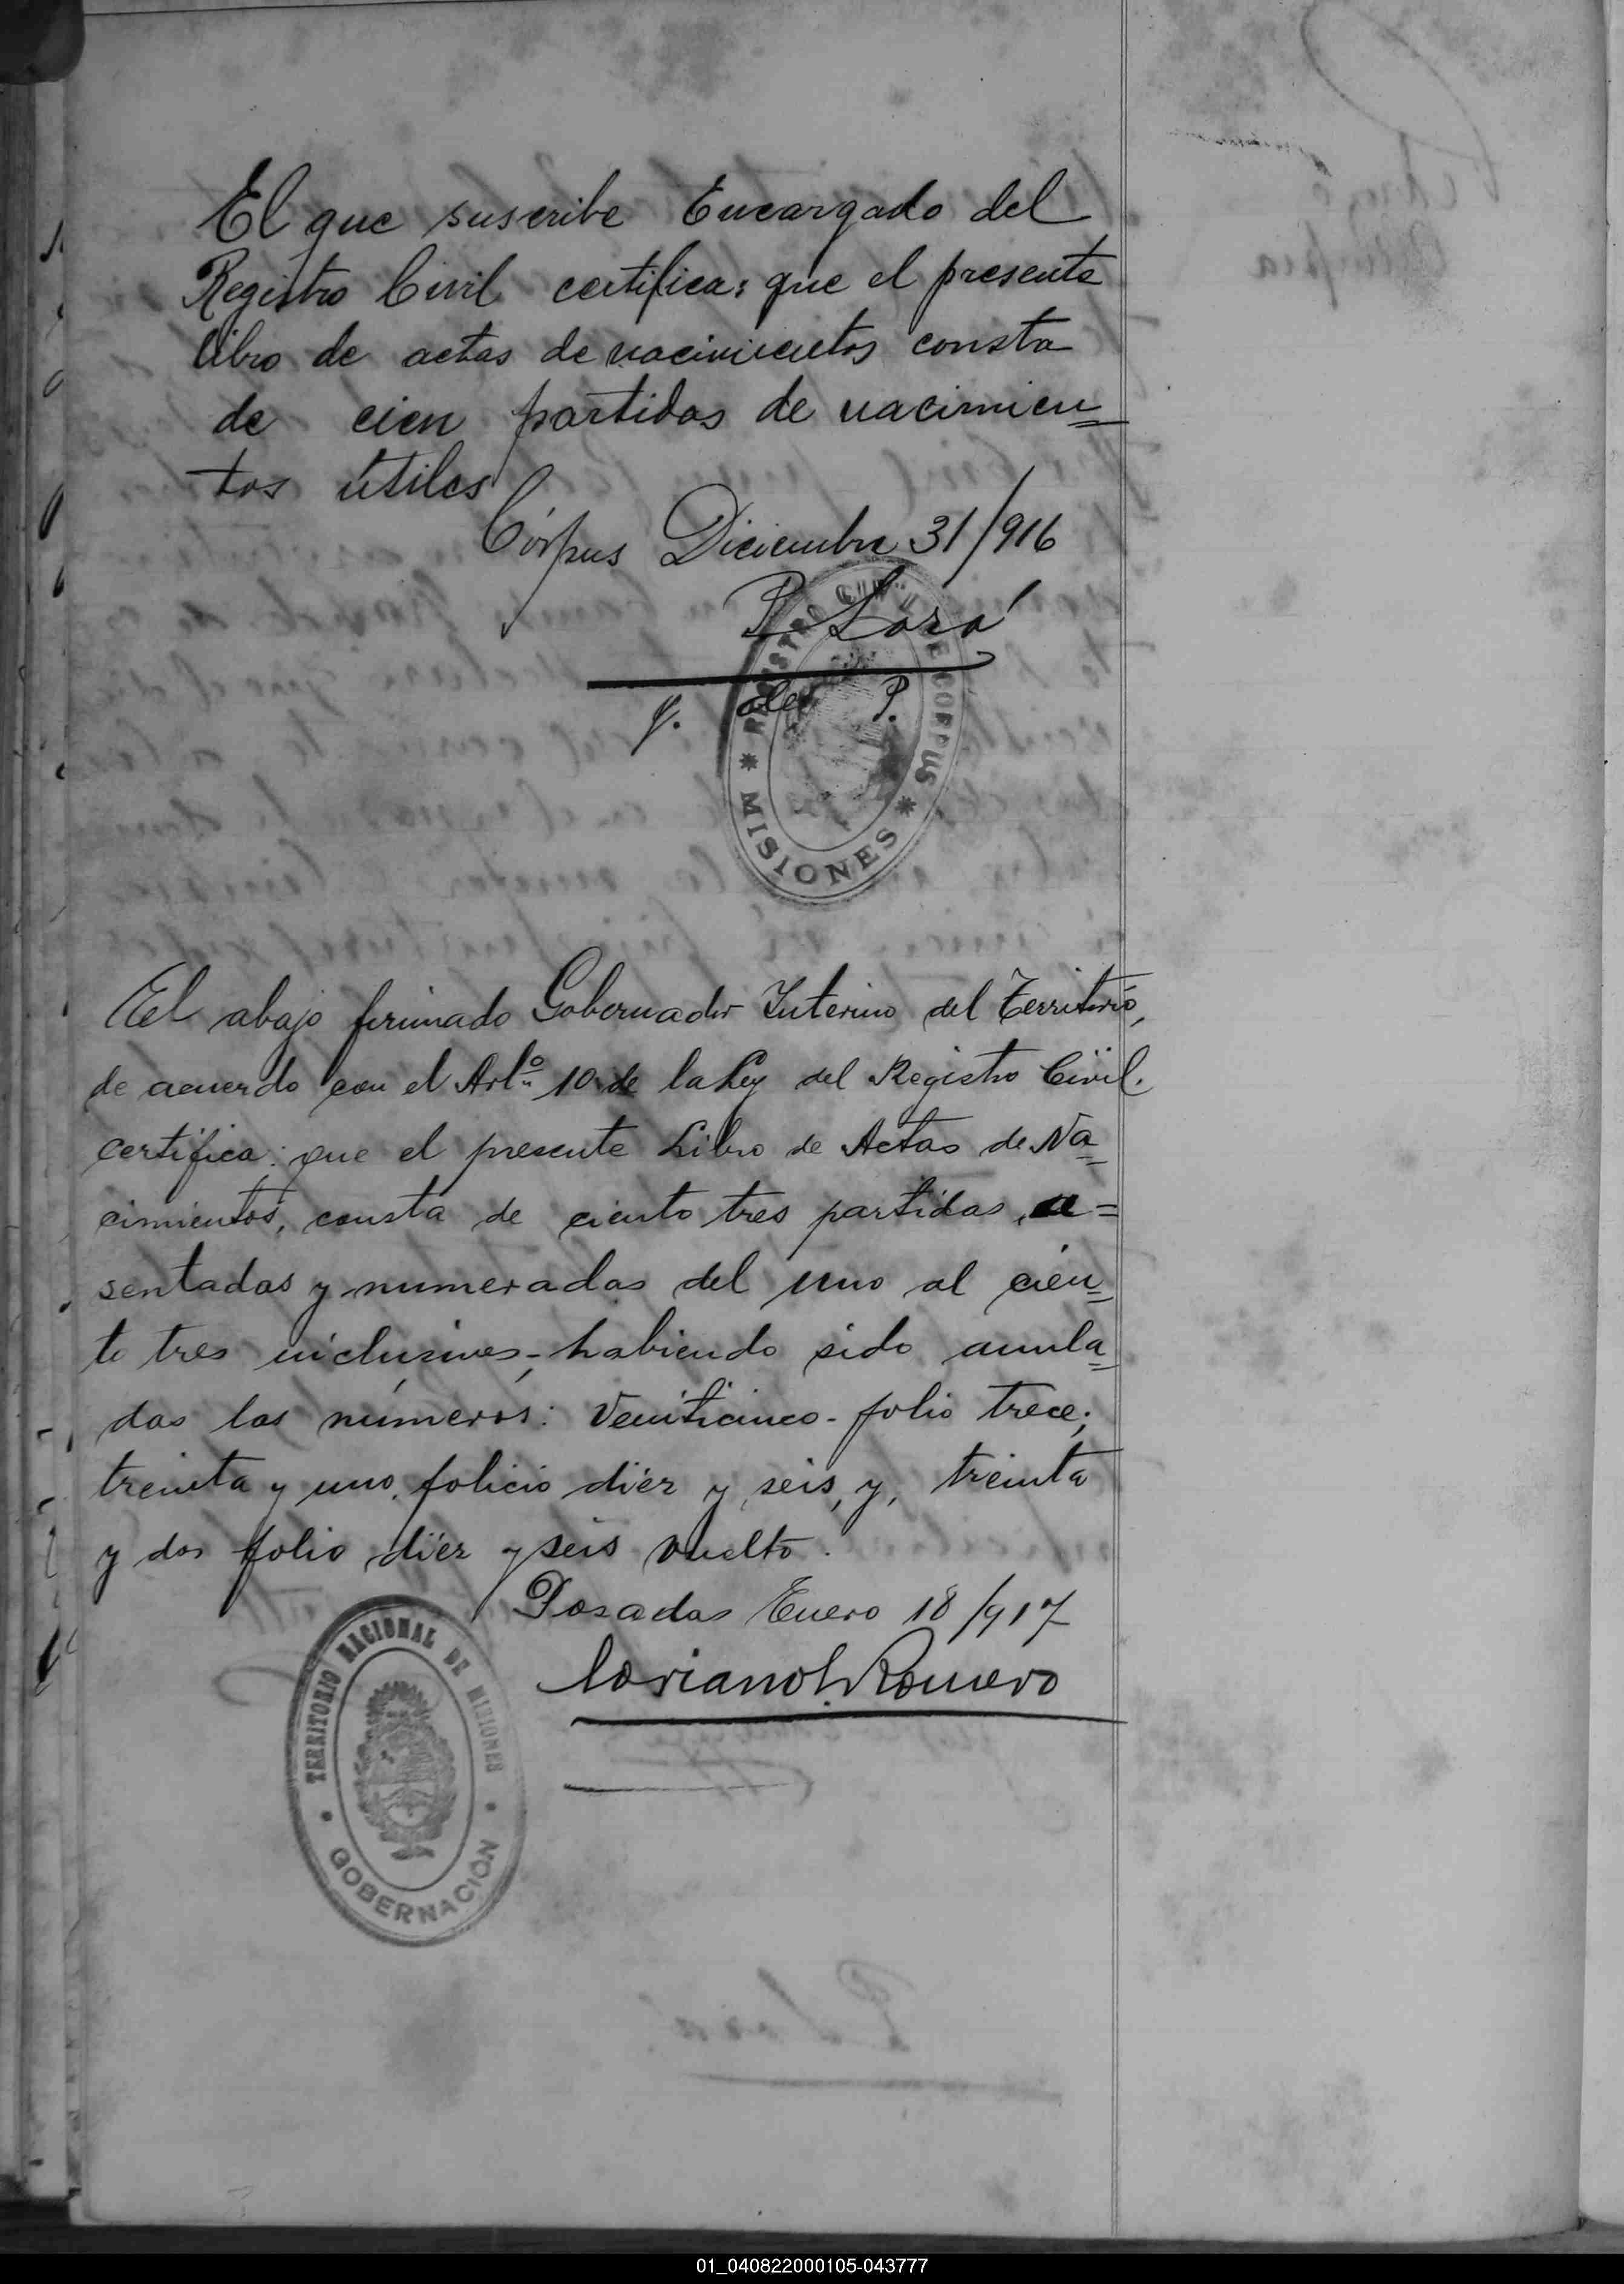 El que suscribe Encargado del
Registro Civil certifica: que el presente
libro de actas de nacimientos consta
de cien partidas de nacimien=
tos útiles
Córpus Diciembre 31/916
P. Lozá
J. del P.
REGISTRO CIVIL DE CORPUS
* MISIONES *
El abajo firmado Gobernador Interino del Territorio,
de acuerdo con el Artº 10 de la Ley del Registro Civil.
certifica: que el presente Libro de Actas de Na=
cimientos, consta de ciento tres partidas, a=
sentadas y numeradas del uno al cien=
to tres inclusives,- habiendo sido anula=
das las números: Veinticinco- folio trece;
treinta y uno, folicio diéz y seis, y, treinta
y dos folio diéz y seis vuelto.
Posadas Enero 18/917
Romero
TERRITORIO NACIONAL DE MISIONES
• GOBERNACIÓN •
01_040822000105-043777